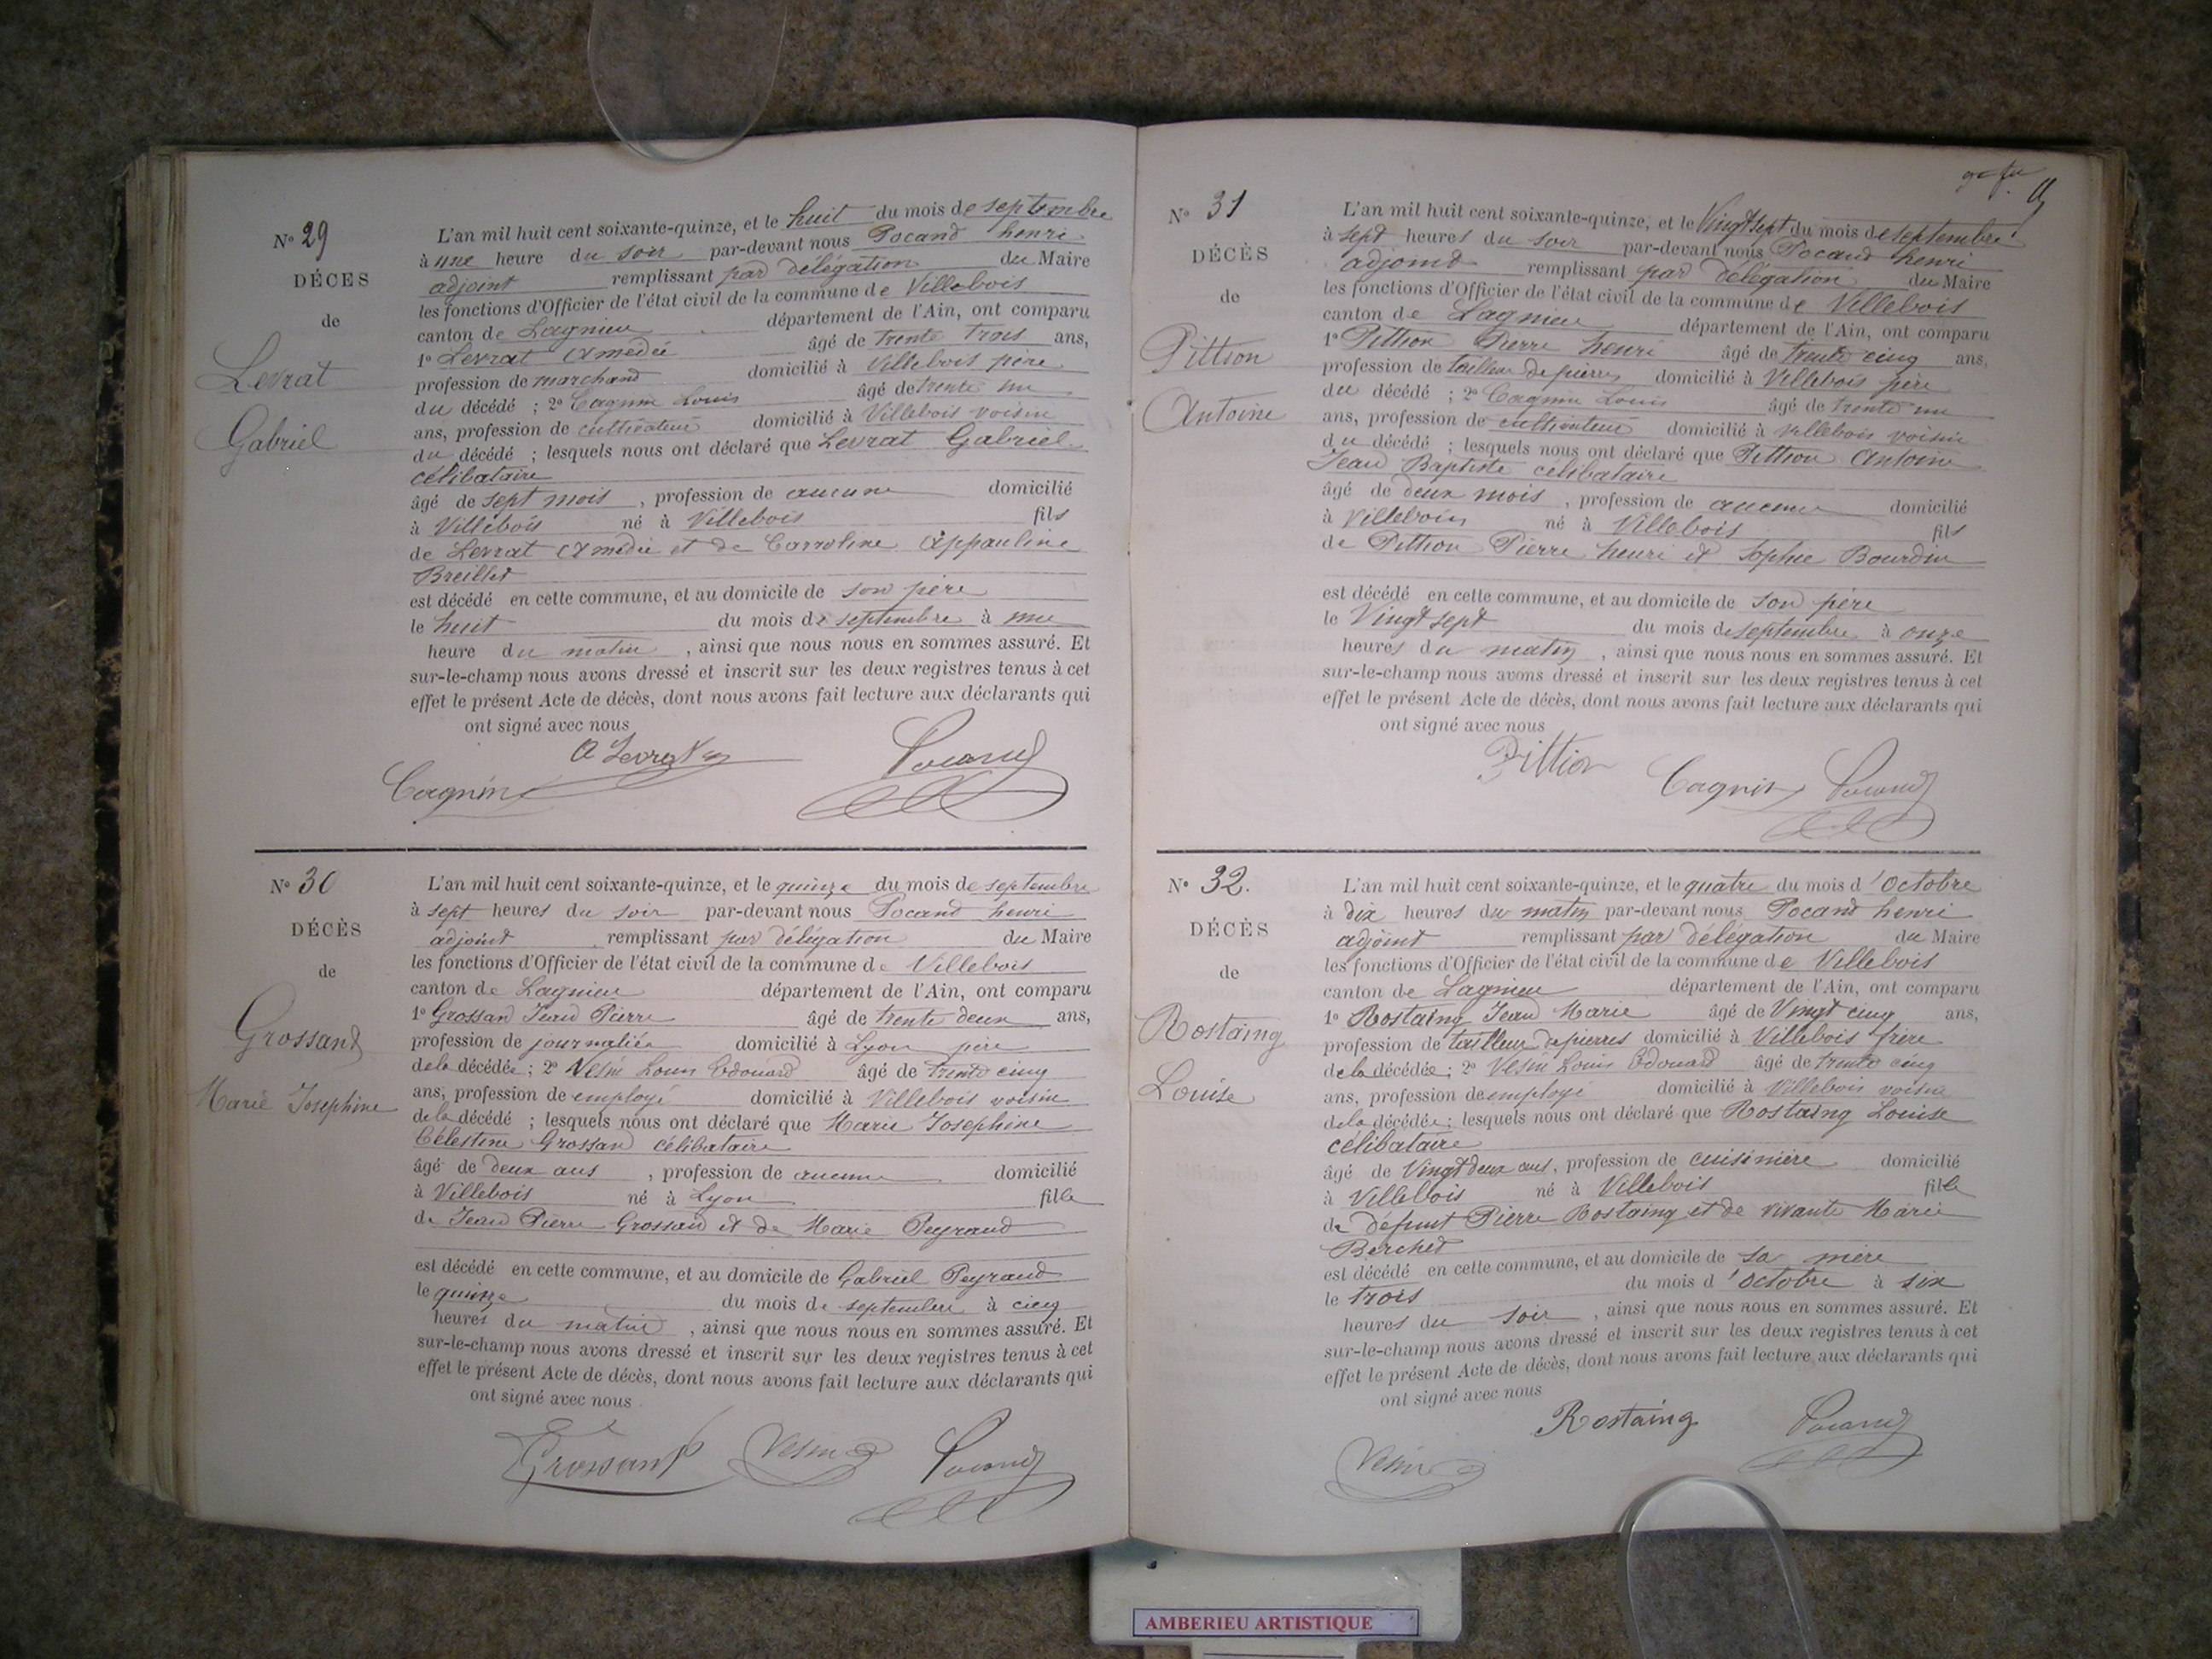 N° 29
DÉCÈS
de
Levrat
Gabriel
L'an mil huit cent soixante-quinze, et le huit du mois de septembre
à une heure du soir par-devant nous Pocand henri
adjoint remplissant par délégation du Maire
les fonctions d'Officier de l'état civil de la commune de Villebois
canton de Lagnieu département de l'Ain, ont comparu
1° Levrat Amédée âgé de trente trois ans,
profession de marchand domicilié à Villebois père
du décédé ; 2° Cagnin Louis âgé de trente un
ans, profession de cultivateur domicilié à Villebois voisin
du décédé ; lesquels nous ont déclaré que Levrat Gabriel
célibataire
âgé de sept mois , profession de aucune domicilié
à Villebois né à Villebois fils
de Levrat Amédée et de Carroline Appauline
Breillet
est décédé en cette commune, et au domicile de son père
le huit du mois de septembre à une
heure du matin , ainsi que nous nous en sommes assuré. Et
sur-le-champ nous avons dressé et inscrit sur les deux registres tenus à cet
effet le présent Acte de décès, dont nous avons fait lecture aux déclarants qui
ont signé avec nous
A Levrat
Cagnin Pocand
N° 30
DÉCÈS
de
Grossand
Marie Josephine
L'an mil huit cent soixante-quinze, et le quinze du mois de septembre
à sept heures du soir par-devant nous Pocand henri
adjoint remplissant par délégation du Maire
les fonctions d'Officier de l'état civil de la commune de Villebois
canton de Lagnieu département de l'Ain, ont comparu
1° Grossan Jean Pierre âgé de trente deux ans,
profession de journalier domicilié à Lyon père
de la décédée ; 2° Vesin Louis Edouard âgé de trente cinq
ans, profession de employé domicilié à Villebois voisin
de la décédé ; lesquels nous ont déclaré que Marie Josephine
Célestine Grossan célibataire
âgé de deux ans , profession de aucune domicilié
à Villebois né à Lyon fille
de Jean Pierre Grossan et de Marie Peyraud
est décédé en cette commune, et au domicile de Gabriel Peyraud
le quinze du mois de septembre à cinq
heures du matin , ainsi que nous nous en sommes assuré. Et
sur-le-champ nous avons dressé et inscrit sur les deux registres tenus à cet
effet le présent Acte de décès, dont nous avons fait lecture aux déclarants qui
ont signé avec nous
Grossant Vesin Pocand
N° 31
DÉCÈS
de
Pittion
Antoine
L'an mil huit cent soixante-quinze, et le Vingt sept du mois de septembre
à sept heures du soir par-devant nous Pocand henri
adjoint remplissant par délégation du Maire
les fonctions d'Officier de l'état civil de la commune de Villebois
canton de Lagnieu département de l'Ain, ont comparu
1° Pittion Pierre henri âgé de trente cinq ans,
profession de tailleur de pierres domicilié à Villebois père
du décédé ; 2° Cagnin Louis âgé de trente un
ans, profession de cultivateur domicilié à villebois voisin
du décédé ; lesquels nous ont déclaré que Pittion Antoine
Jean Baptiste célibataire
âgé de deux mois , profession de aucune domicilié
à Villebois né à Villebois fils
de Pittion Pierre henri et Sophie Bourdin
est décédé en cette commune, et au domicile de son père
le Vingt sept du mois de septembre à onze
heures du matin , ainsi que nous nous en sommes assuré. Et
sur-le-champ nous avons dressé et inscrit sur les deux registres tenus à cet
effet le présent Acte de décès, dont nous avons fait lecture aux déclarants qui
ont signé avec nous
Pittion Cagnin Pocand
N° 32.
DÉCÈS
de
Rostaing
Louise
L'an mil huit cent soixante-quinze, et le quatre du mois d'Octobre
à dix heures du matin par-devant nous Pocand henri
adjoint remplissant par délégation du Maire
les fonctions d'Officier de l'état civil de la commune de Villebois
canton de Lagnieu département de l'Ain, ont comparu
1° Rostaing Jean Marie âgé de Vingt cinq ans,
profession de tailleur de pierres domicilié à Villebois frère
de la décédée ; 2° Vesin Louis Edouard âgé de trente cinq
ans, profession de employé domicilié à Villebois voisin
de la décédée ; lesquels nous ont déclaré que Rostaing Louise
célibataire
âgé de Vingt deux ans, profession de cuisinière domicilié
à Villebois né à Villebois fille
de défunt Pierre Rostaing et de vivante Marie
Berchet
est décédé en cette commune, et au domicile de sa mère
le trois du mois d'octobre à six
heures du soir , ainsi que nous nous en sommes assuré. Et
sur-le-champ nous avons dressé et inscrit sur les deux registres tenus à cet
effet le présent Acte de décès, dont nous avons fait lecture aux déclarants qui
ont signé avec nous
Rostaing Pocand
Vesin
AMBERIEU ARTISTIQUE